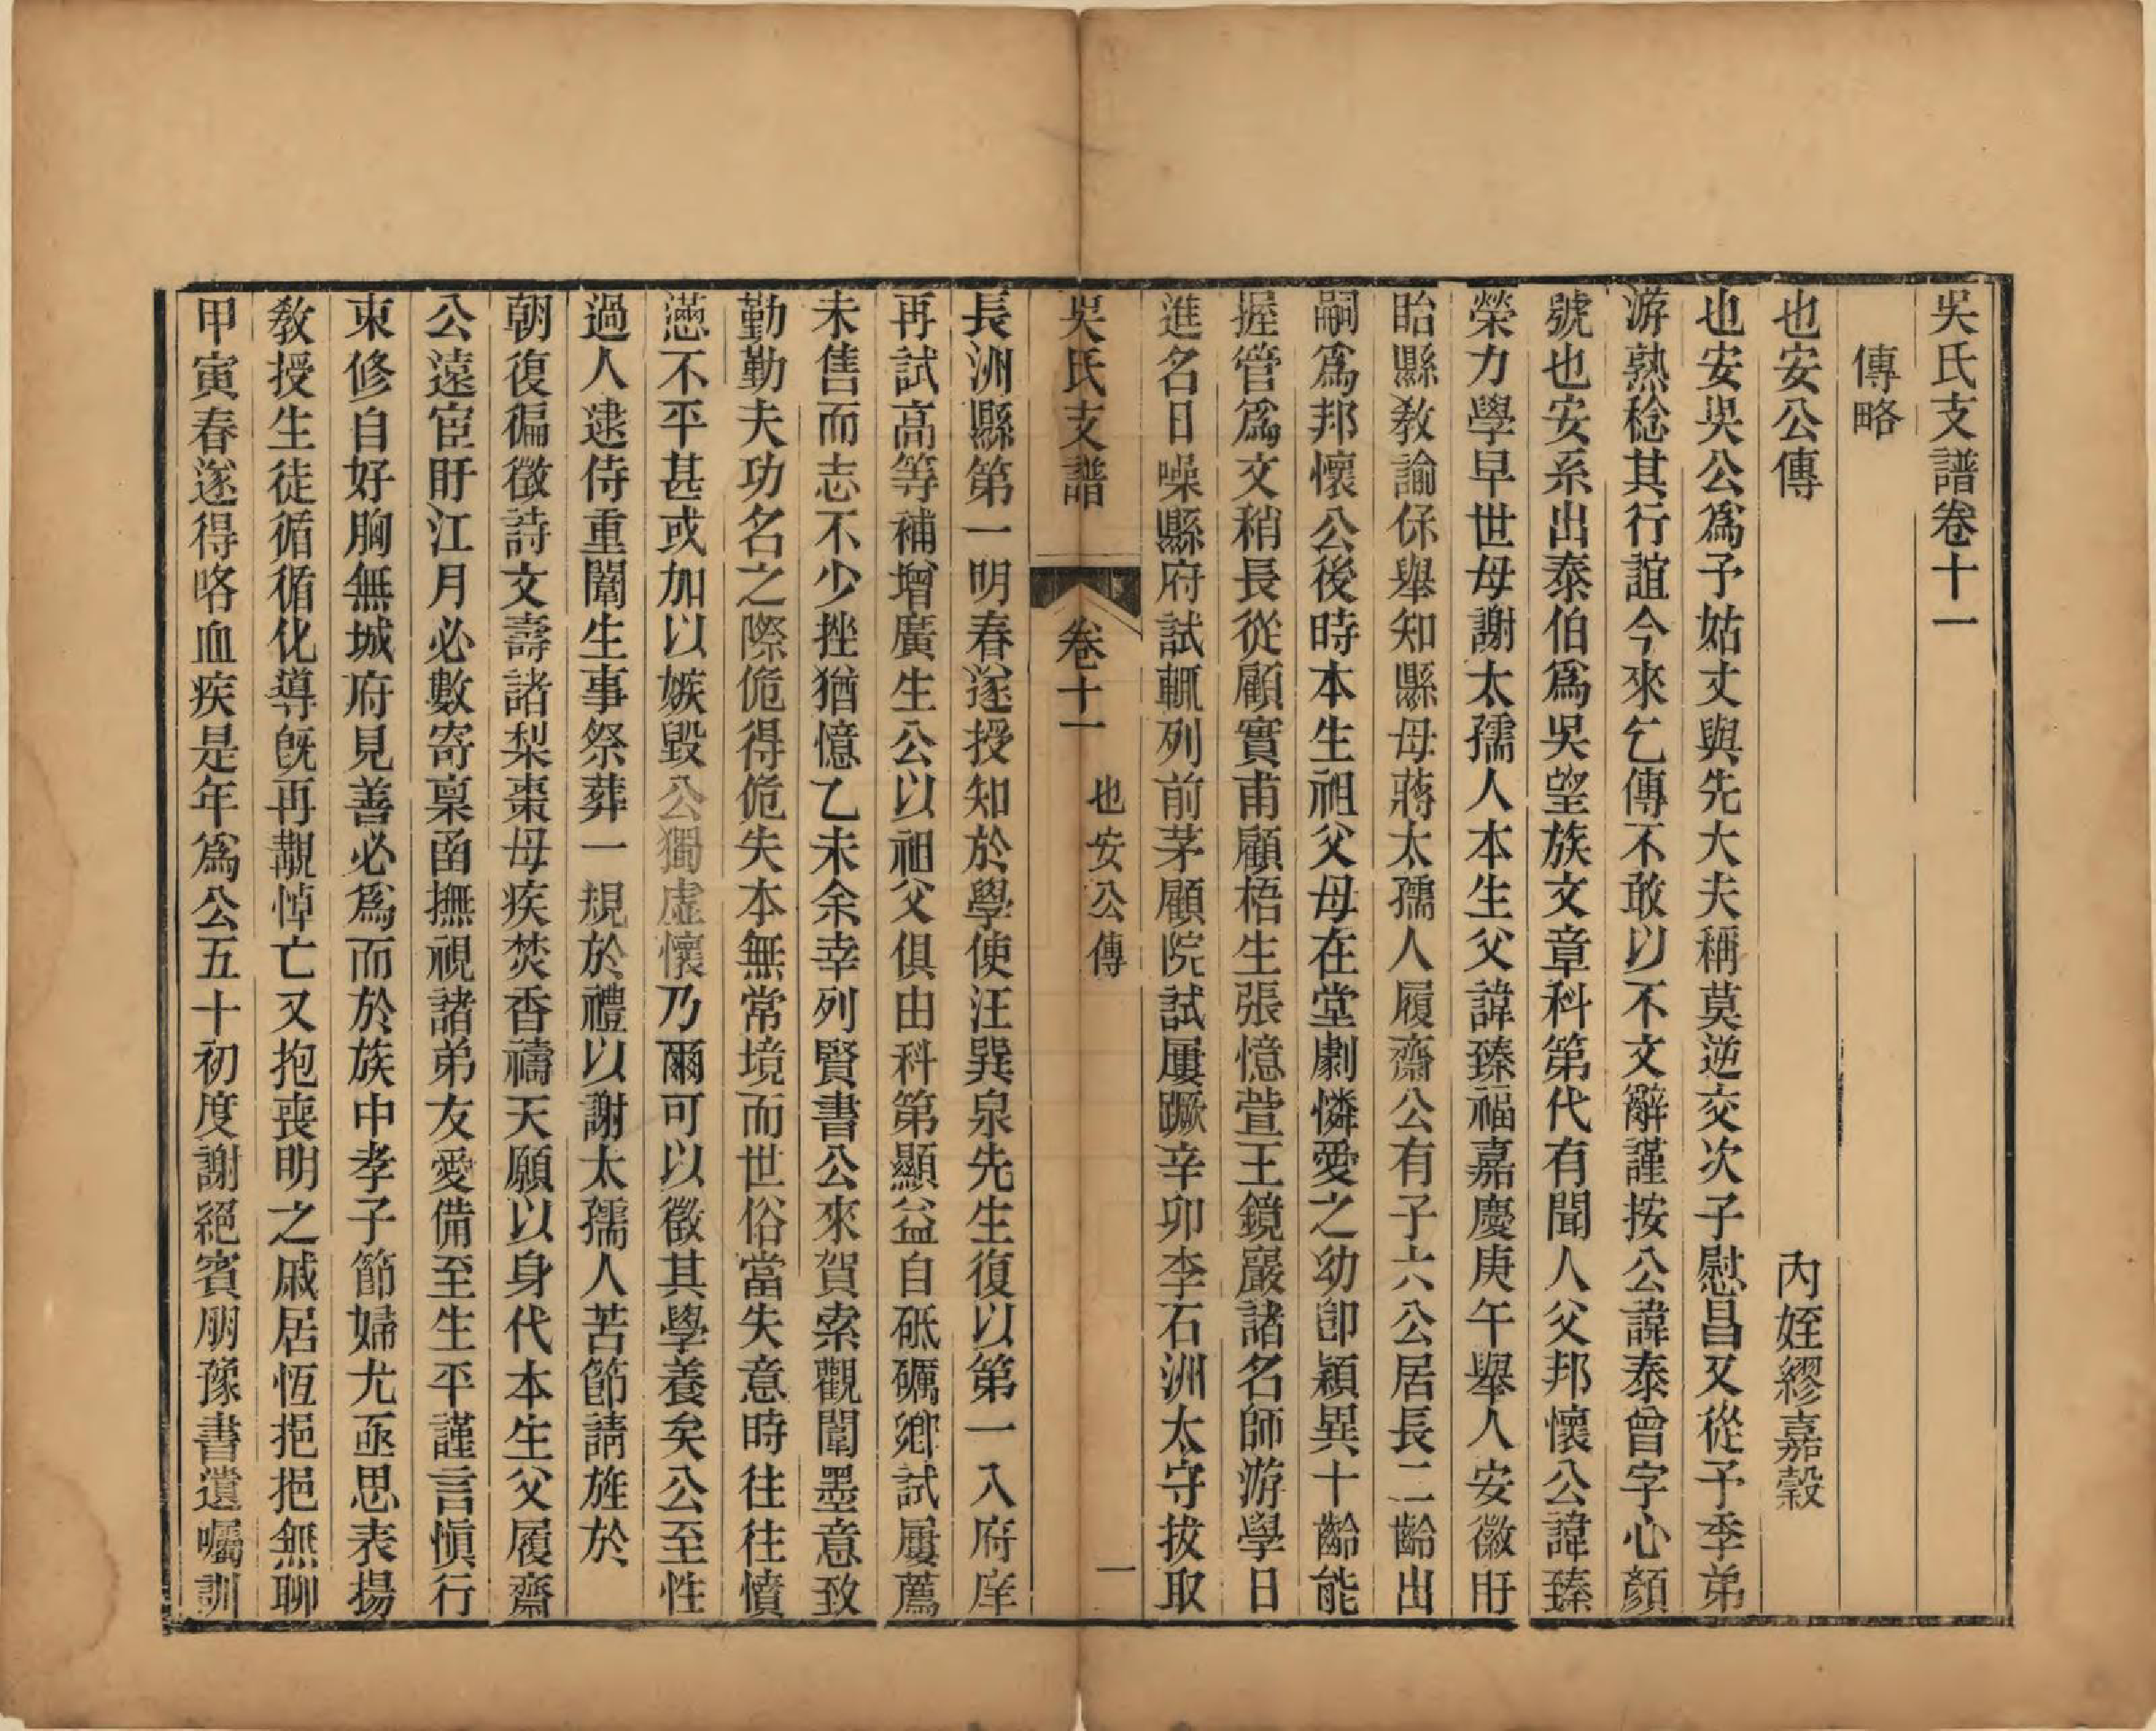 吳氏支譜卷十一
傳略
也安公傳
內姪繆嘉穀
也安吳公爲予姑丈與先大夫稱莫逆交次子慰昌又從予季弟
游熟稔其行誼今來乞傳不敢以不文辭謹按公諱泰曾字心顏
號也安系出泰伯爲吳望族文章科第代有聞人父邦懷公諱臻
榮力學早世母謝太孺人本生父諱臻福嘉慶庚午舉人安徽盱
眙縣敎諭保舉知縣母蔣太孺人履齋公有子六公居長二齡出
嗣爲邦懷公後時本生祖父母在堂劇憐愛之幼卽穎異十齡能
握管爲文稍長從顧實甫顧梧生張憶萱王鏡巖諸名師游學日
進名日噪縣府試輒列前茅顧院試屢蹶辛卯李石洲太守拔取
吳氏支譜
卷十一
也安公傳
一
長洲縣第一明春遂授知於學使汪巽泉先生復以第一入府庠
再試高等補增廣生公以祖父俱由科第顯益自砥礪鄉試屢薦
未售而志不少挫猶憶乙未余幸列賢書公來賀索觀闈墨意致
勤勤夫功名之際倖得倖失本無常境而世俗當失意時往往憤
懣不平甚或加以嫉毀公獨虛懷乃爾可以徵其學養矣公至性
過人逮侍重闈生事祭葬一規於禮以謝太孺人苦節請旌於
朝復徧徵詩文壽諸梨棗母疾焚香禱天願以身代本生父履齋
公遠宦盱江月必數寄稟函撫視諸弟友愛備至生平謹言愼行
束修自好胸無城府見善必爲而於族中孝子節婦尤亟思表揚
敎授生徒循循化導旣再覯悼亡又抱喪明之戚居恆挹挹無聊
甲寅春遂得咯血疾是年爲公五十初度謝絕賓朋豫書遺囑訓